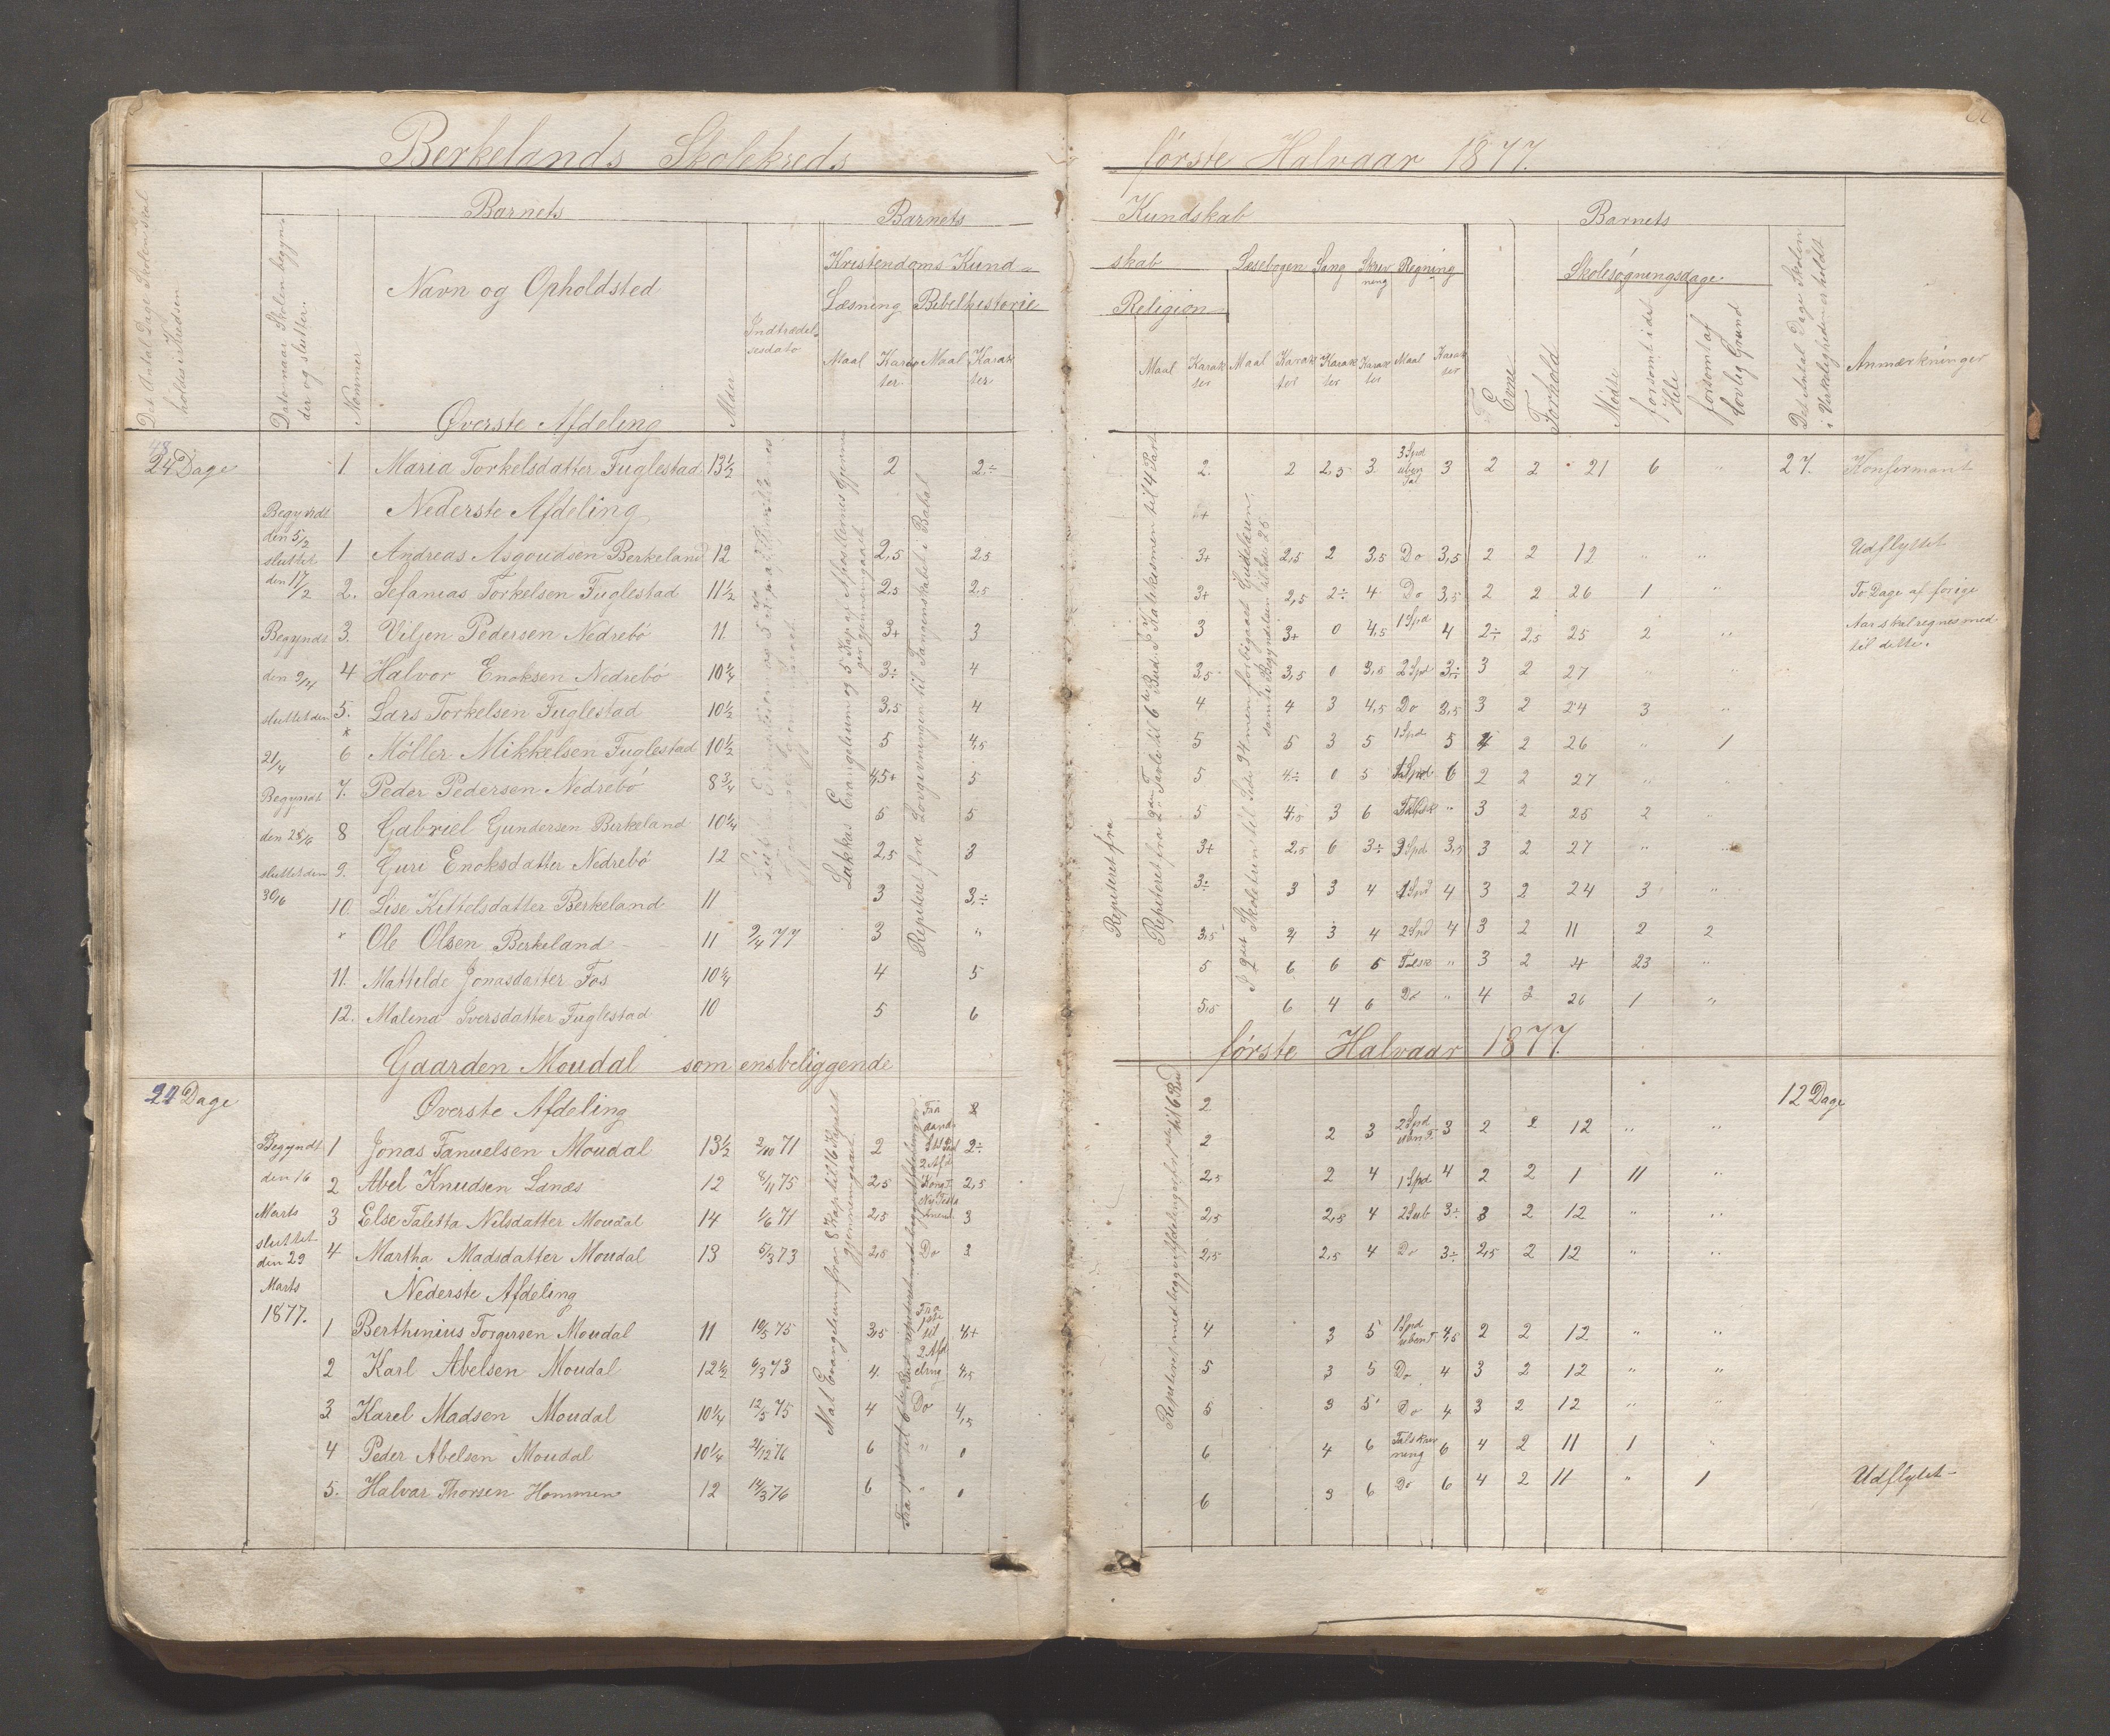 Berkelands Skolekreds første Halvaar 1877.
Barnets Barnets Kundskab Barnets
Det Antal Dage Skolen skal holdes i Kredsen
Dato naar Skolen begynder og slutter.
Nommer
Navn og Opholdsted
Alder
Indtrædelsesdato
Kristendoms Kundskab
Læsning Bibelhistorie Religion
Maal Karakter Maal Karakter
Maal Karakter
Læsebogen Sang Skrivning Regning
Maal Karakter Karakter Karakter Maal Karakter
Evne
Forhold
Skolesøgningsdage
Mødte
forsømt i det Hele
forsømt af lovlig Grund
Det Antal Dage Skolen i Virkeligheden er holdt
Anmærkninger
Øverste Afdeling
24 Dage 1. Maria Torkelsdatter Fuglestad 13½ 2 2÷ 2 2 2,5 3 3 Spd uben Tal 3 2 2 21 6 " 27. Konfirmant
Nederste Afdeling
Begyndt den 5/2 sluttet den 17/2
Begyndt den 9/4 sluttet den 21/4
Begyndt den 28/6 sluttet den 30/6
1 Andreas Asgoudsen Berkeland 12 2,5 2,5 3+ 2,5 2 3,5 Do 3,5 2 2 12 " " Udflyttet
2. Sefanias Torkelsen Fuglestad 11½ 2,5 2,5 3+ 2,5 2÷ 4 Do 3,5 2 2 26 1 " To Dage af forige
3. Viljen Pedersen Nedrebó 11 3+ 3 3 3+ 0 4,5 1 Spd 4 2÷ 2,5 25 2 " Aar skal regnes med
til dette.
4 Halvor Enoksen Nedrebó 10¼ 3÷ 4 3,5 3,5 0 3,5 2 Spd 3÷ 3 2 27 " "
5. Lars Torkelsen Fuglestad 10½ 3,5 4 4 4 3 4,5 Do 3,5 3 2 24 3 "
6 Møller Mikkelsen Fuglestad 10½ 5 4,5 5 5 3 5 1 Spd 5 4 2 26 " 1
7. Peder Pedersen Nedrebó 8¾ 4,5+ 5 5 4÷ 0 5 1 Spd 6 2 2 27 " "
8 Gabriel Gundersen Birkeland 10¼ 5 5 5 4,5 3 6 " 3 2 25 2 "
9. Guri Enoksdatter Nedrebó 12 2,5 3 3+ 2,5 6 3÷ 3 Spd 3,5 3 2 27 " "
10. Lise Kittelsdatter Berkeland 11 3 3÷ 3÷ 3 3 4 1 Spd 4 3 2 24 3 "
Ole Olsen Berkeland 11 9/4 77 3 " 3,5 3 4 2 Spd 4 3 2 11 2 2
11. Mathilde Jonasdatter Fos 10¼ 4 5 5 6 6 " 3 2 4 23 "
12. Malena Iversdatter Fuglestad 10 5 6 5,5 6 4 6 Do " 4 2 26 1 "
Lukkas Evangelium og 5 Kap af Apostlernes Gjerninger gjennemgaaet
Repiteret fra Lovgivningen til Tungemaalet i Babel
Repiteret fra
Repiteret fra 2den Tavle til 6te Bud. I Katekismen til 4 Part
Gaarden Moudal som ensbeliggende første Halvaar 1877.
Øverste Afdeling
Dage
12 Dage
Begyndt den 16 Marts sluttet den 29 Marts 1877.
1 Jonas Tanuelsen Moudal 13½ 2/10 71 2 2÷ 2 2 3 2 Spd uben T 3 2 2 12 " "
2 Abel Knudsen Lanes 12 8/11 75 2,5 2,5 2,5 2 4 1 Spd 4 2 2 1 11 "
3 Else Taletta Nilsdatter Moudal 14 1/6 71 2,5 3 2,5 2,5 4 2 Sub 3÷ 3 2 12 " "
4 Martha Madsdatter Moudal 13 5/3 73 2,5 Do 3 2,5 2,5 4 Do 3÷ 2,5 2 12 " "
Nederste Afdeling
1 Berthinius Torgersen Moudal 11 10/5 75 3,5 4+ 4 3 5 1 Spd uben T 4,5 2 2 12 " "
2 Karl Abelsen Moudal 12½ 6/3 73 4. 4,5 5 3 5 Do 4 3 2 12 " "
3 Karel Madsen Moudal 10¼ 12/5 75 4 Do 4,5 5 3 5 Do 4 3 2 12 " "
4 Peder Abelsen Moudal 10¼ 21/12 76 6 " 0 6 4 6 Talskrivning 6 4 2 11 1 "
5. Halvar Thorsen Hommen 12 14/3 76 6 " 0 6 3 6 Do 6 4 2 11 " 1 Udflyttet